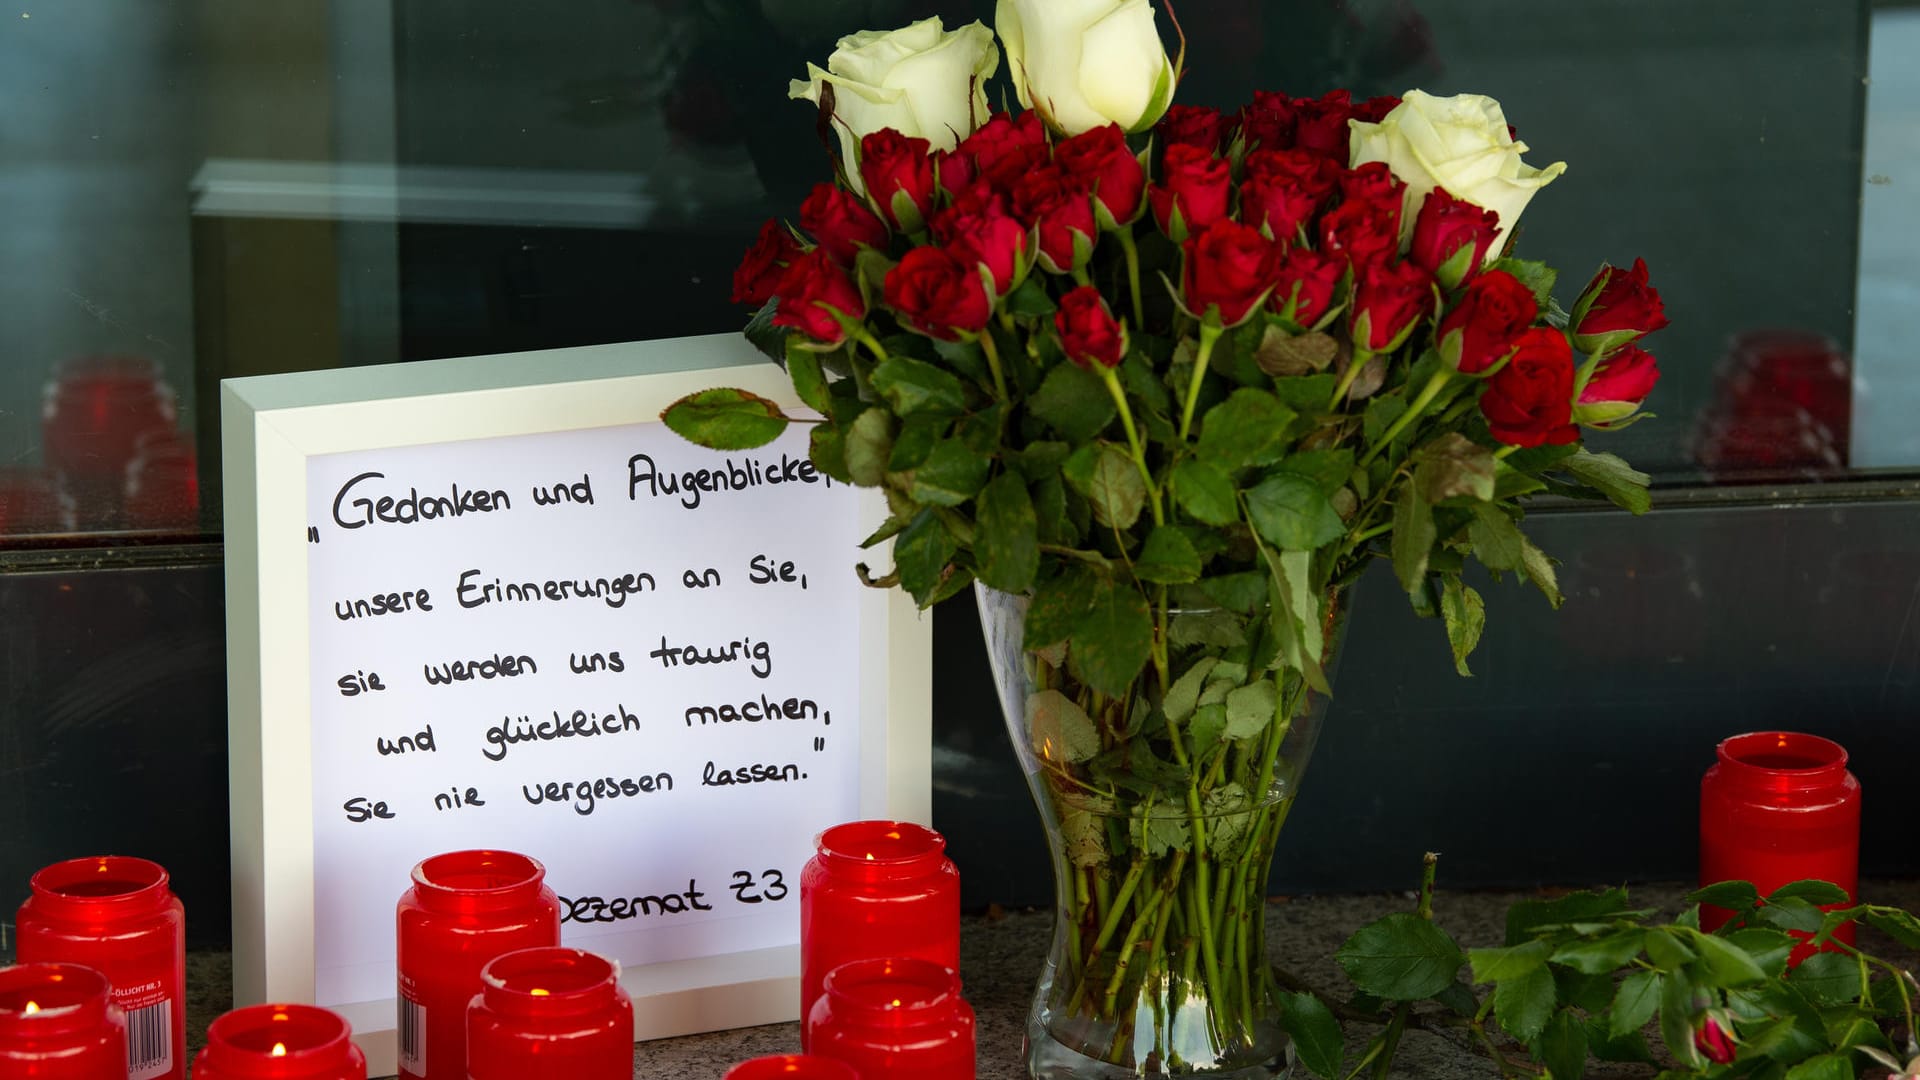 „Gedanken und Augenblicke,
unsere Erinnerungen an Sie,
sie werden uns traurig
und glücklich machen,
Sie nie vergessen lassen."
Dezernat Z3
ÖLLICHT NR. 3